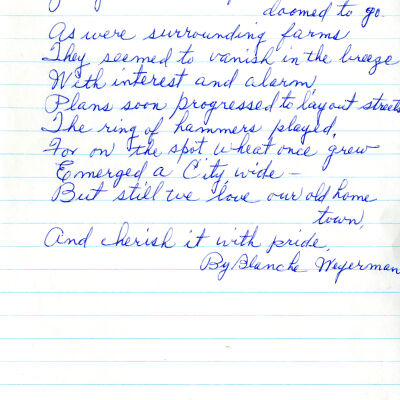 doomed to go.
As were surrounding farms
They seemed to vanish in the breeze
With interest and alarm,
Plans soon progressed to lay out streets
The ring of hammers played,
For on the spot wheat once grew
Emerged a City wide -
But still we love our old home
town,
And cherish it with pride.
By Blanche Weyerman